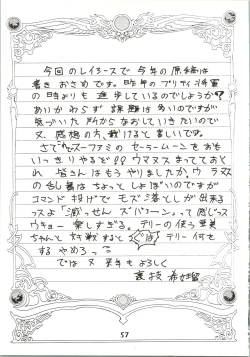 今回のレイ3ースで今年の原稿は
書きおさめです。昨年のプリティ将軍
の時よりも進歩しているのでしょうか?
あいかわらず課題は多いのですが
気づいた所からなおしていきたいので
又、感想の方、頂けると嬉しいです。
さて スーファミのセーラームーンをおも
いっきりやるぞ!! ウラヌスまっててお
れ 皆さんはもうやりましたか、ウラヌス
の乱舞はちょっとしょぼいのですが
コマンド投げでモズ落としが出来る
っスよ「滅っせんズバァーン」って感じっス
ウキョー楽しすぎる。テリーの使う里美
ちゃんと対戦すると「ぐはぁ」テリー何を
するやめろっる
では又来年もよろしく
裏技 希
57